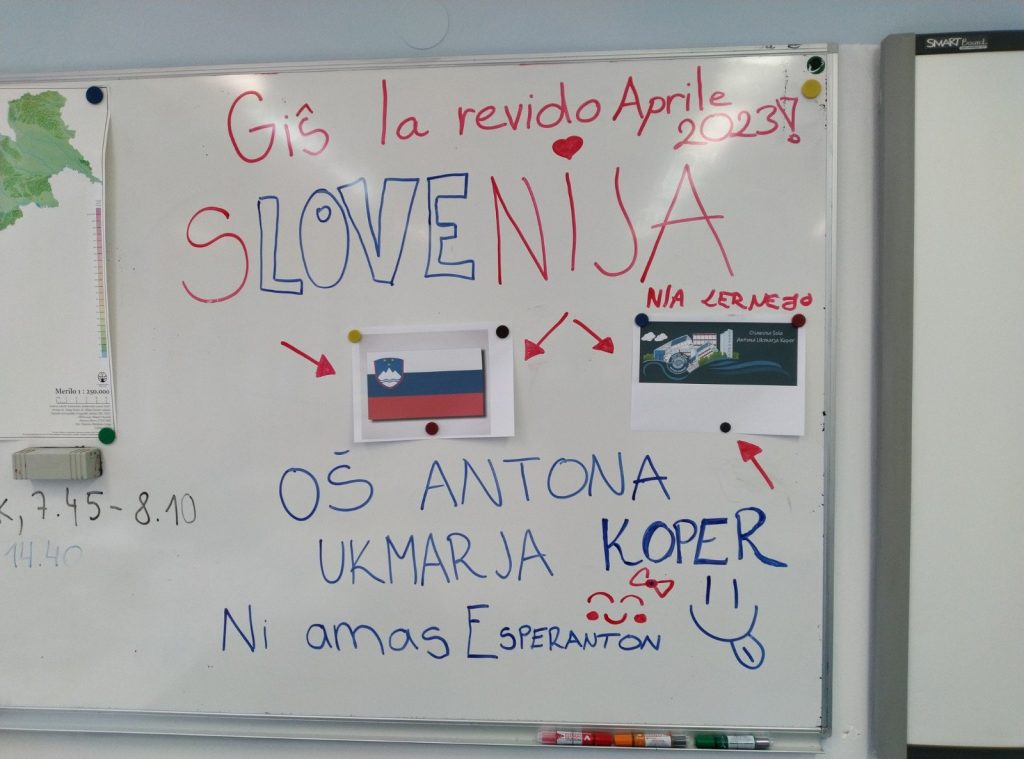 SMART Board
Giŝ la revido Aprile
2023!
SLOVENIJA
NIA LERNEJO
Osnovna šola
Antona Ukmarja Koper
Merilo 1 : 250.000
OŠ ANTONA
UKMARJA KOPER
K, 7.45-8.10
14.40
Ni amas ESPERANTON